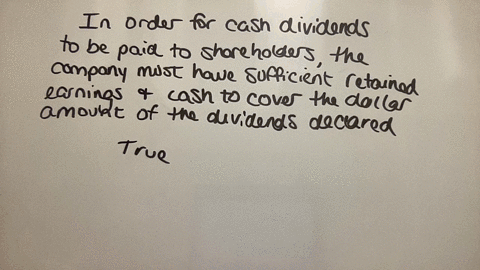 In order for cash dividends
to be paid to shareholders, the
company must have sufficient retained
earnings & cash to cover the dollar
amount of the dividends declared
True